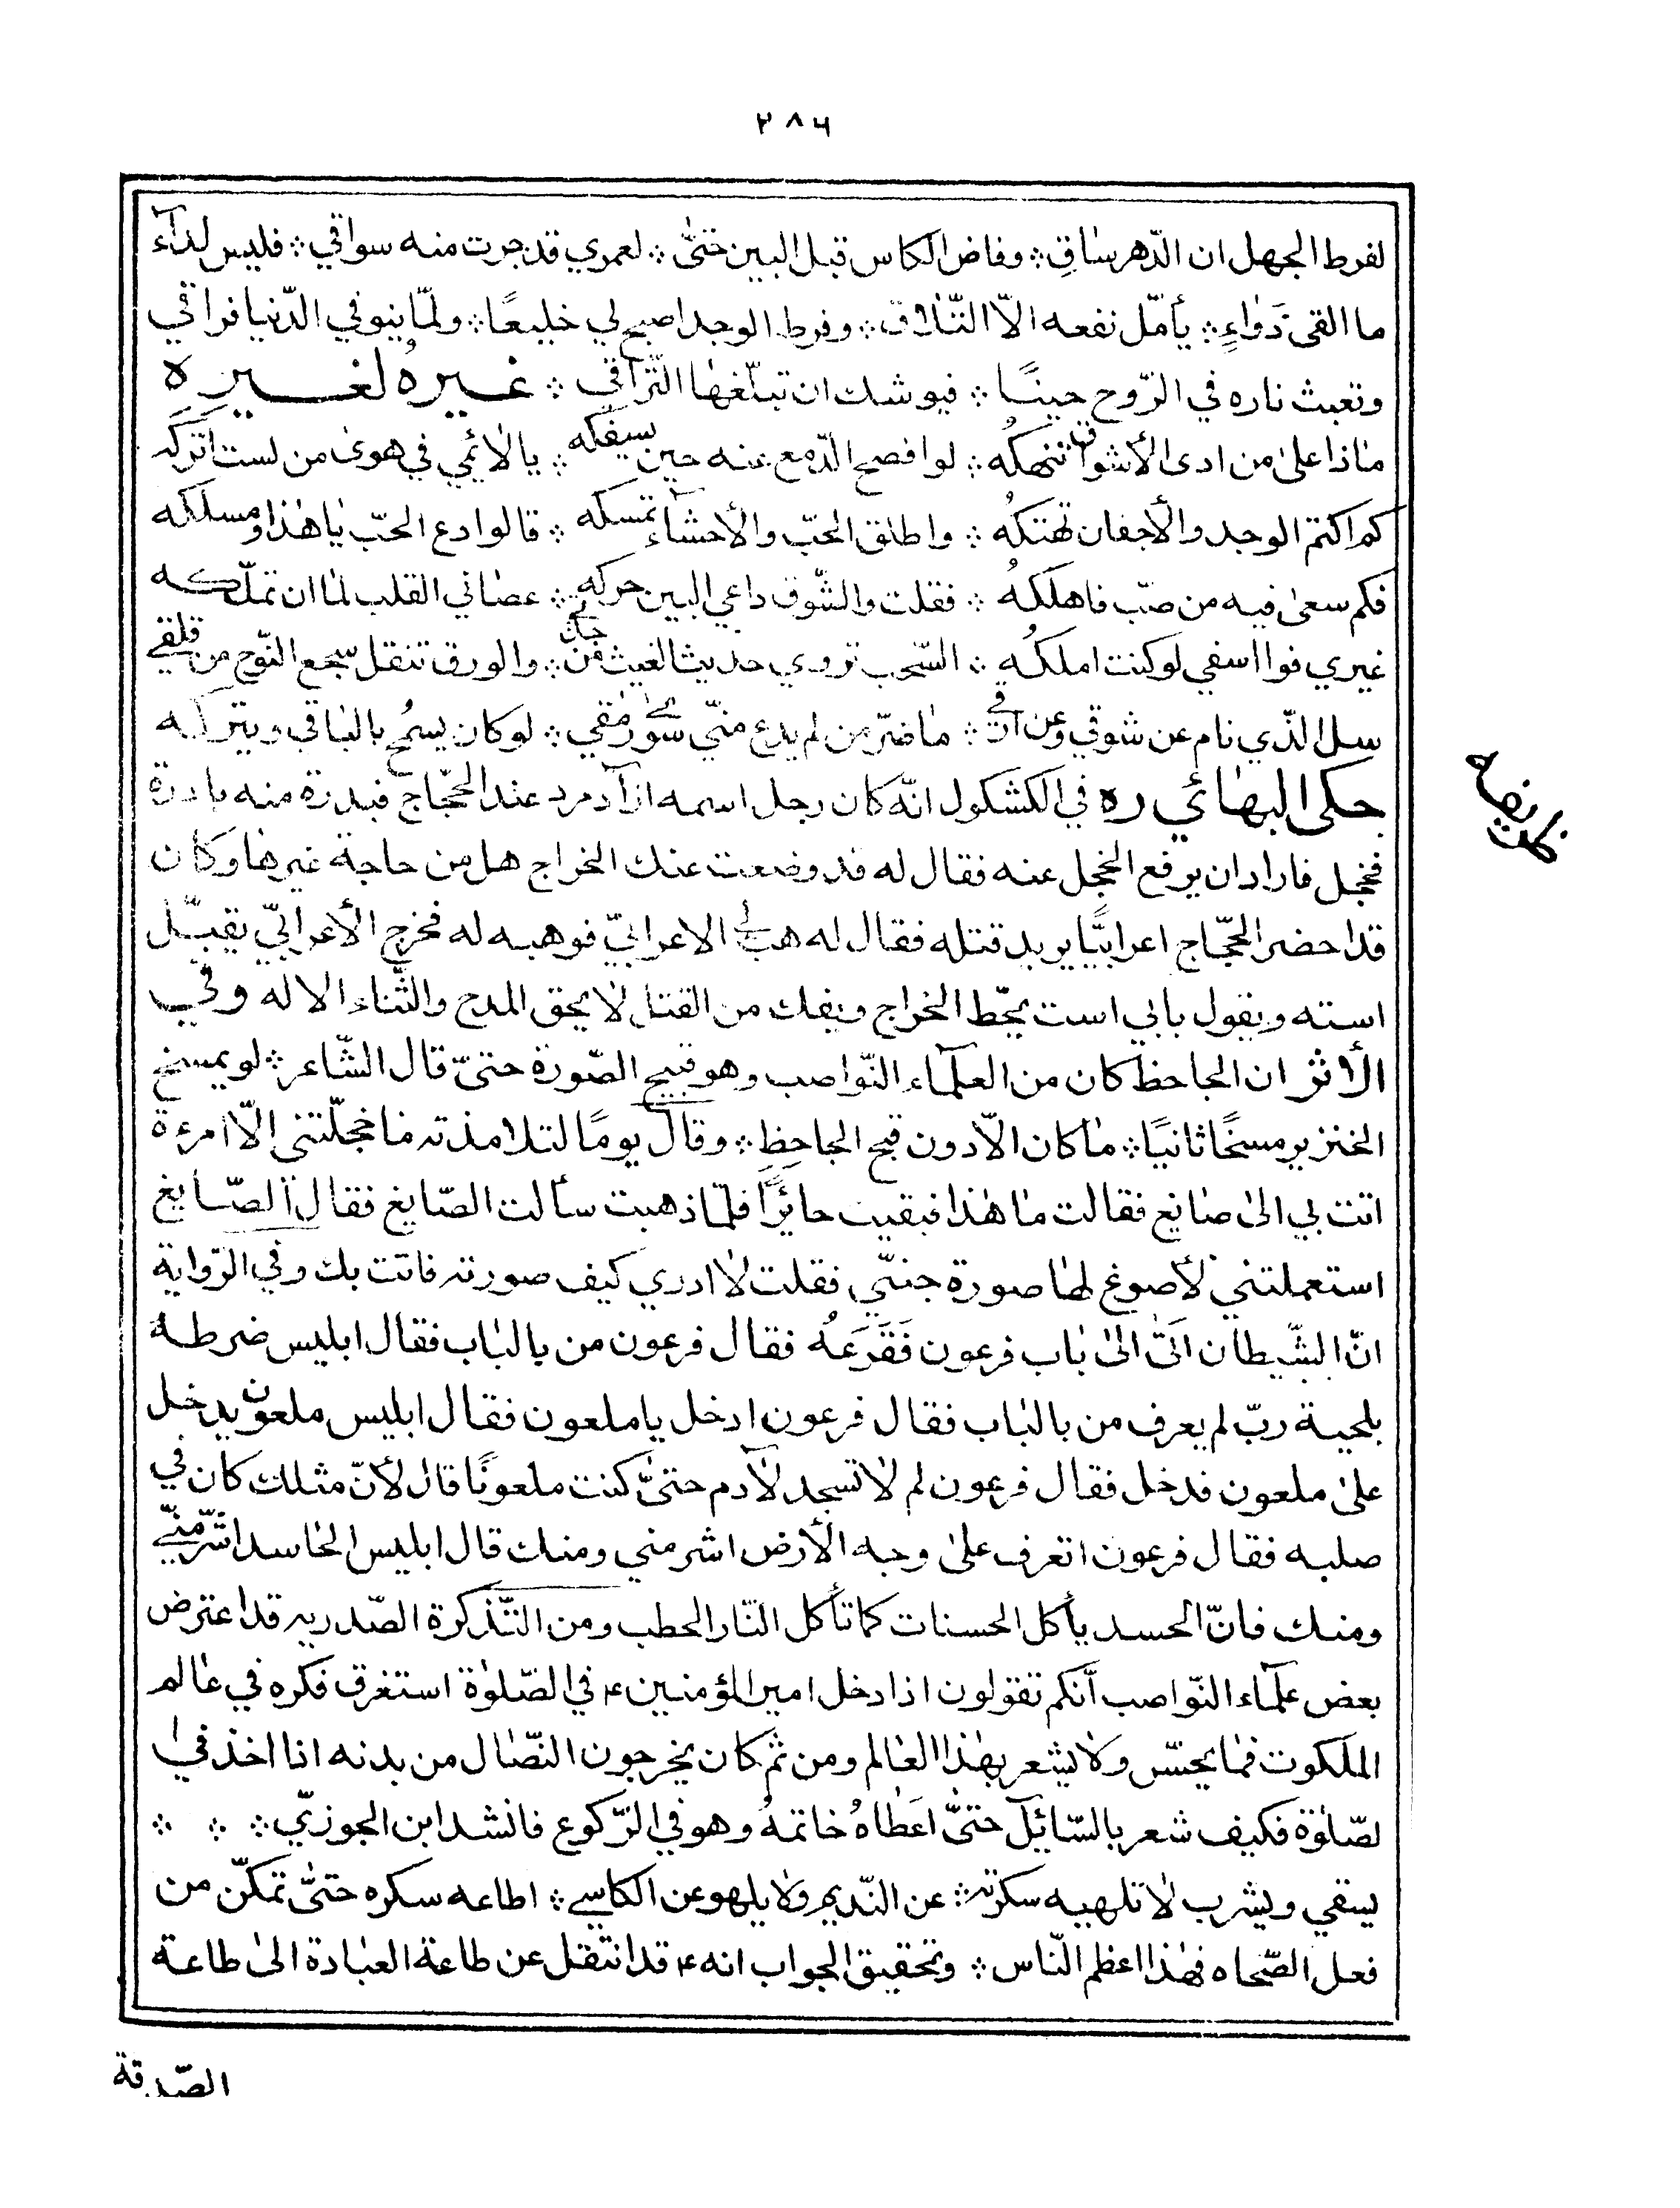 ٢٨٦
لفرط الجهل ان الدّهر ساقٍ ؞ وفاض الكاس قبل البين حتىّ ؞ لعمري قد جرت منه سواقي ؞ فليس لدآء
ما القى دَواءٍ ؞ يأمّل نفعه الاّ التّلاق ؞ وفرط الوجد اصبح لي خليعًا ؞ ولمّا ينو في الدّنيا فراقي
وتعبث ناره في الرّوح حينًا ؞ فيوشك ان تبلّغها التّراقي ؞ غيره لغيره
ماذا على من ادى الأشواق تنهكه ؞ لو افصح الدّمع عنه حين يسفكه ؞ يا لائمي في هوى من لست اتركه
كم اكتم الوجد والأجفان تهتكهُ ؞ واطلق الحبّ والأحشاء تمسكه ؞ قالوا دع الحبّ يا هذا ومسلكه
فكم سعى فيه من صبّ فاهلكهُ ؞ فقلت والشّوق داعي البين حركه ؞ عصاني القلب لما ان تملّكه
غيري فوا اسفي لو كنت املكُه ؞ السّحب تروي حديث الغيث من ؞ والورق تنقل سجع النّوح من قلقي
سل الذّي نام عن شوقي وعن ارقي ؞ ما ضرّ من لم يدع منّي سوى رمقي ؞ لو كان يسمُح بالباقي ويتركه
حكى البهائي ره في الكشكول انّه كان رجل اسمه ازآدمرد عند الحجّاج فبدرة منه بادرة
ظريفه
فخجل فاراد ان يرفع الخجل عنه فقال له قد وضعت عنك الخراج هل من حاجة غيرها وكان
قد احضر الحجّاج اعرابيًّا يريد قتله فقال له هب لي الاعرابيّ فوهبه له فخرج الأعرابيّ يقبّل
استه ويقول بابي است يحّط الخراج ويفك من القتل لا يحق المدح والثّناء الا له وفي
الأثر ان الجاحظ كان من العلمآء النّواصب وهو قبيح الصّورة حتىّ قال الشّاعر ؞ لو يمسخ
الخنزير مسخًا ثانيًا ؞ ما كان الاّ دون قبح الجاحظِ ؞ وقال يومًا لتلامذته ما خجلّتني الاّ امرءة
اتت بي الى صايغ فقالت ما هذا فبقيت حائرًا فلمّا ذهبت سألت الصّايغ فقال الصّايغ
استعملتني لأصوغ لها صورة جنّي فقلت لا ادري كيف صورته فاتت بك وفي الرّواية
انّ الشّيطان اتىَ الىٰ باب فرعون فَقَرَعَهُ فقال فرعون من بالباب فقال ابليس ضرطة
بلحية ربّ لم يعرف من بالباب فقال فرعون ادخل يا ملعون فقال ابليس ملعون يدخل
على ملعون فدخل فقال فرعون لم لا تسجد لآدم حتىّ كنت ملعونًا قال لأنّ مثلك كان في
صلبه فقال فرعون اتعرف على وجه الأرض اشر مني ومنك قال ابليس الحاسد اشّر منّي
ومنك فانّ الحسد يأكل الحسنات كما تأكل النّار الحطب ومن التّذكرة الصّدريه قد اعترض
بعض علمآء النّواصب أنكم تقولون اذا دخل امير المؤمنين ع في الصّلوٰة استغرق فكره في عالم
الملكوت فما يحسّ ولا يشعر بهذا العالم ومن ثم كان يخرجون النّصال من بدنه اذا اخذ في
لصّلوٰة فكيف شعر بالسّائل حتىّ اعطاهُ خاتمهُ وهو في الرّكوع فانشد ابن الجوزيّ ؞ ؞ ؞
يسقي ويشرب لا تلهيه سكرته ؞ عن النّديم ولا يلهو عن الكاسي ؞ اطاعه سكره حتىّ تمكّن من
فعل الصّحاه فهذا اعظم النّاس ؞ وتحقيق الجواب انه ع قد انتقل عن طاعة العبادة الى طاعة
الصّدقة